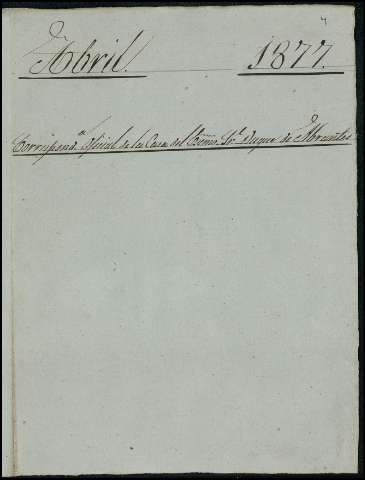 4
Abril. 1877.
Correspond.ª oficial de la Casa del Excmo. Sr. Duque de Abrantes